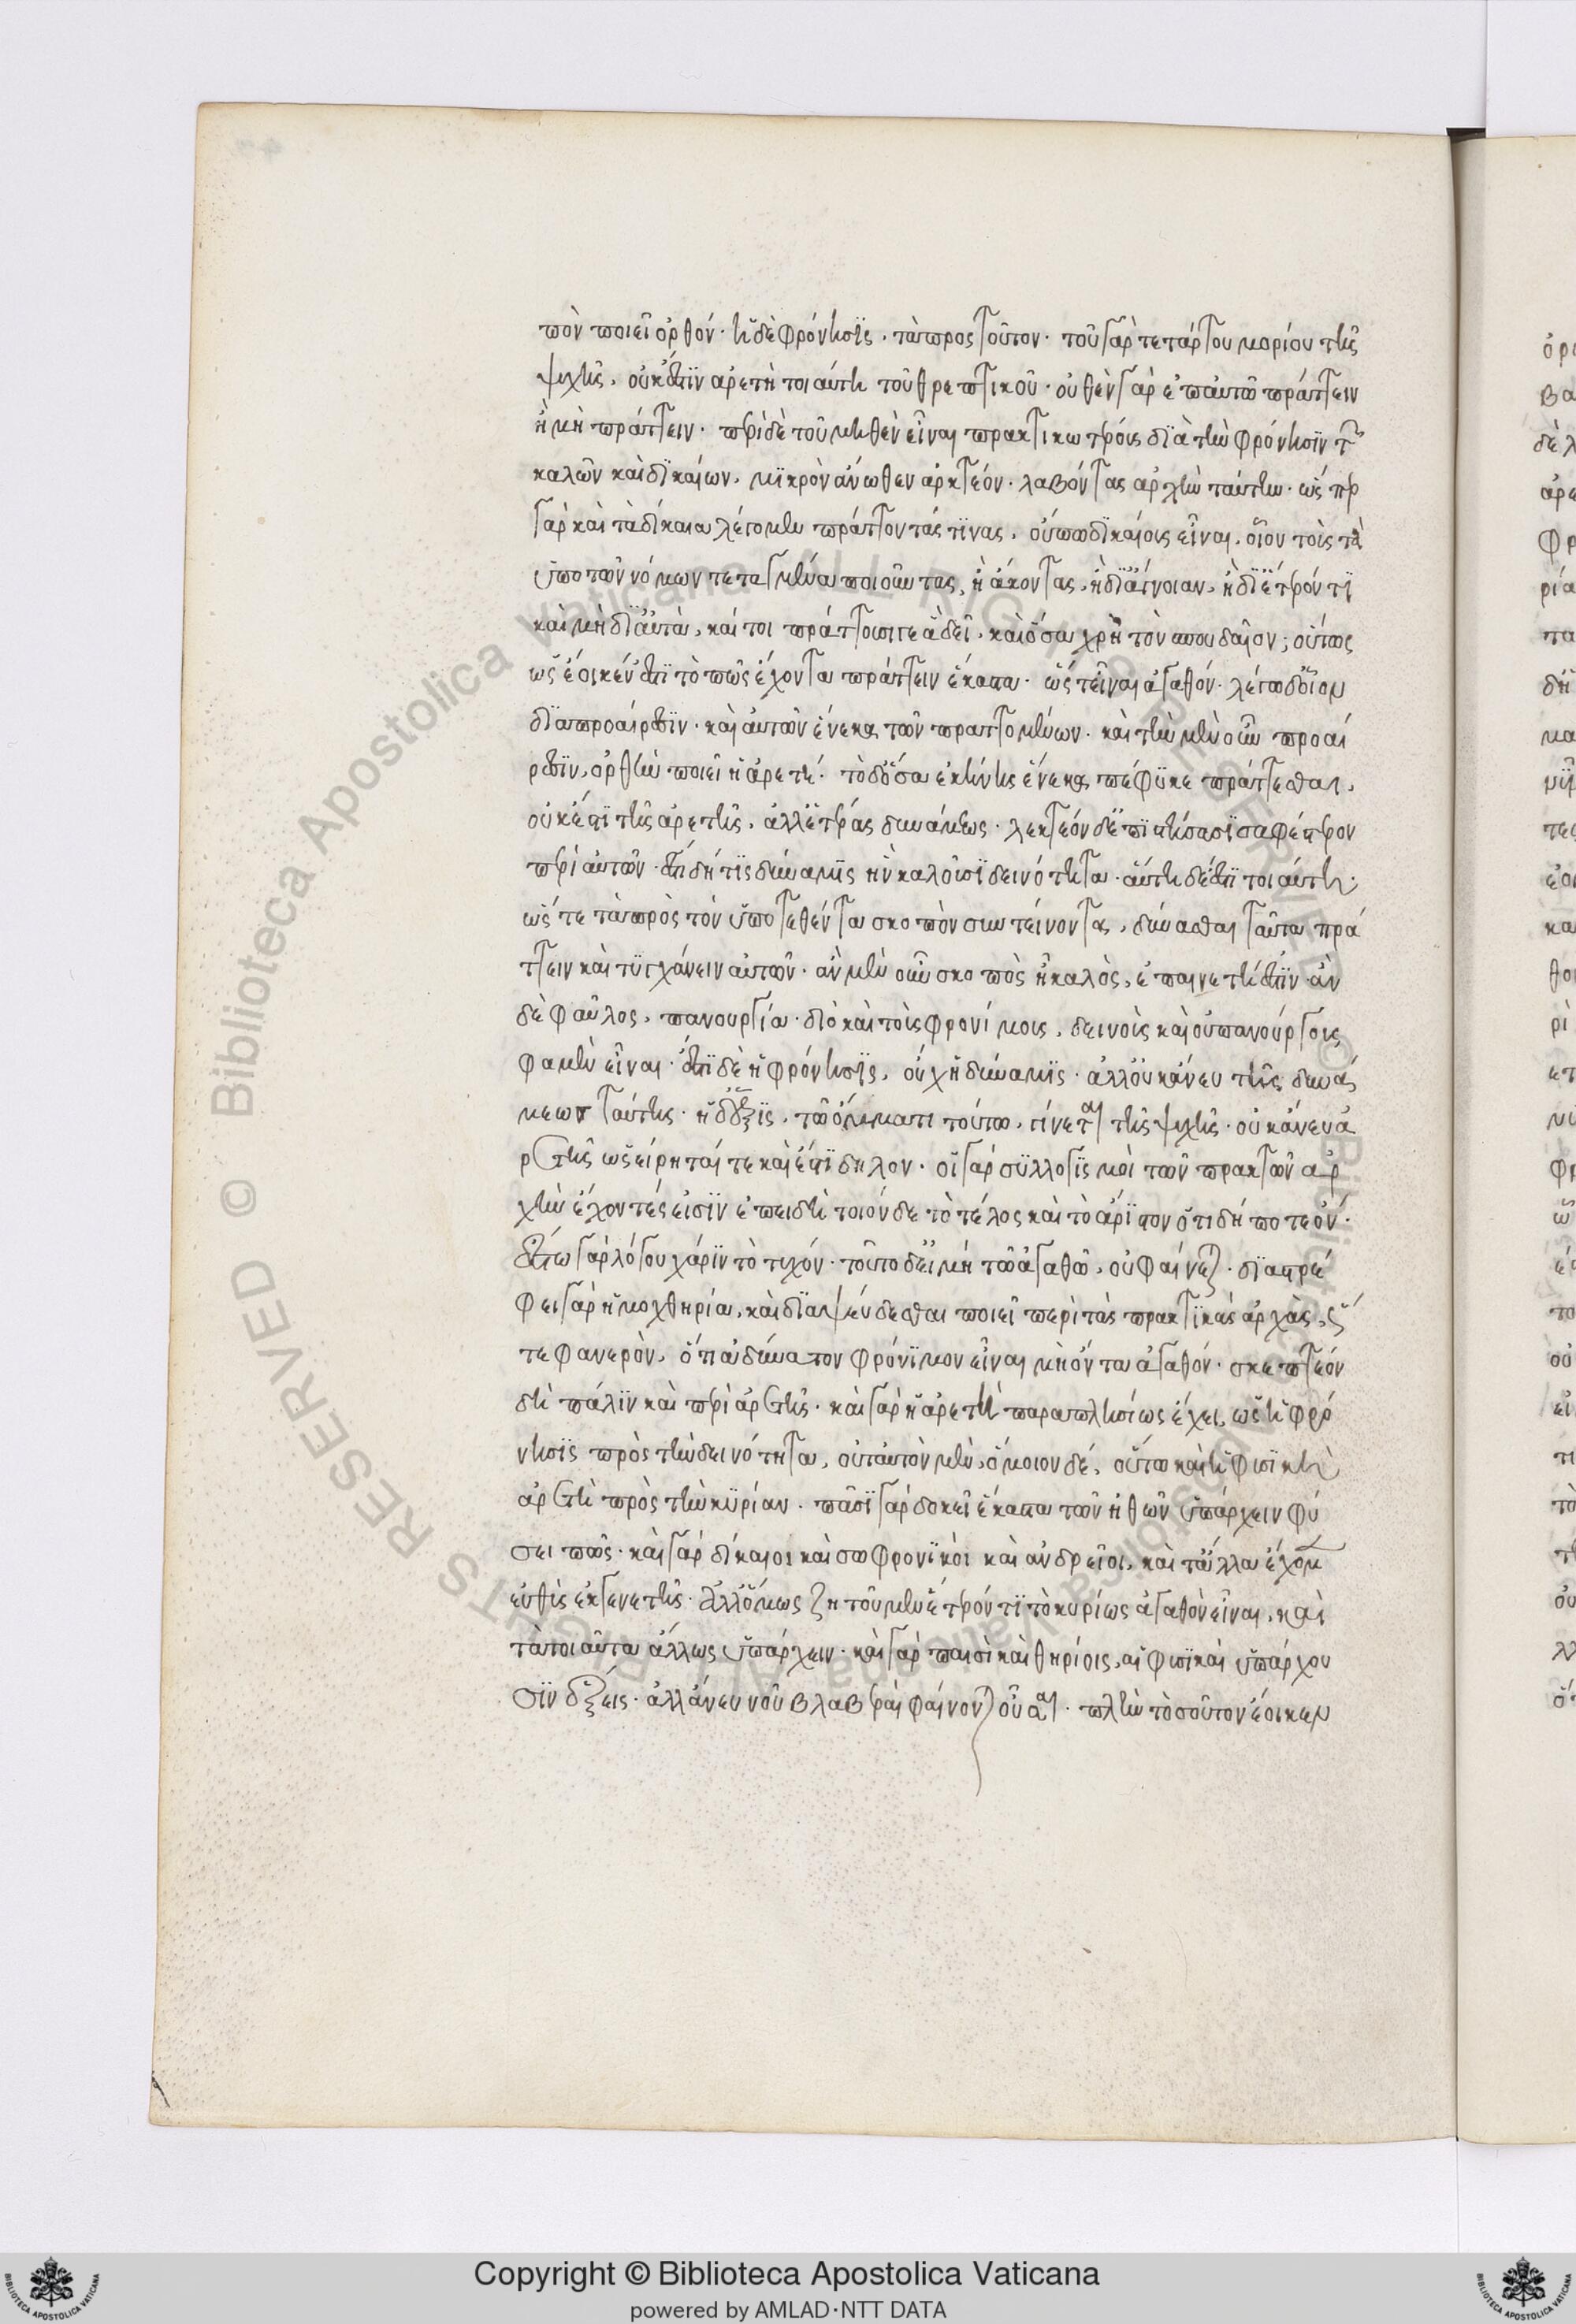 πὸν ποιεῖ ὀρθόν· ἡ δὲ φρόνησϊς, τὰ προς τοῦτον· τοῦ γὰρ τετάρτου μορίου τῆς
ψυχῆς, οὐκ ἔστϊν ἀρετὴ τοιαύτη τοῦ θρεπτικοῦ· οὐθὲν γὰρ ἐπ αὐτῶ πράττειν
ἢ μὴ πράττειν· περὶ δὲ τοῦ μηθὲν εἶναι πρακτικωτέρους δϊὰ τὴν φρόνησϊν τῶν
καλῶν καὶ δϊκαίων, μϊκρὸν ἄνωθεν ἀρκτέον· λαβόντας ἀρχὴν ταύτην· ὥσπερ
γὰρ καὶ τὰ δίκαια λέγομεν πράττοντάς τϊνας, οὔπω δϊκαίους εἶναι, οἷον τοὺς τὰ
ὑπο τῶν νόμων τεταγμένα ποιοῦντας, ἢ ἄκοντας, ἢ δϊ ἄγνοιαν, ἢ δϊ ἕτερόν τϊ
καὶ μὴ δϊ αὐτὰ, καί τοι πράττουσι γε ἃ δεῖ, καὶ ὅσα χρὴ τὸν σπουδαῖον; οὕτως
ὡς ἔοικεν ἔστϊ τὸ πῶς ἔχοντα πράττειν ἕκαστα· ὥστ εἶναι ἀγαθόν· λέγω δ οἷον
δϊα προαίρεσϊν· καὶ αὐτῶν ἕνεκα τῶν πραττομένων· καὶ τὴν μὲν οὖν προαί
ρεσϊν, ὀρθὴν ποιεῖ ἡ ἀρετή· τὸ δ ὅσα ἐκείνης ἕνεκα πέφϋκε πράττεσθαι,
οὐκ ἔστϊ τῆς ἀρετῆς, ἀλλ ἑτέρας δυνάμεως· λεκτέον δ ἐπϊστήσασϊ σαφέστερον
περὶ αὐτῶν· ἔστι δή τϊς δύναμϊς ἣν καλοῦσϊ δεινότητα· αὕτη δ ἐστὶ τοιαύτη·
ὥστε τὰ πρὸς τὸν ὑποτεθέντα σκοπὸν συντείνοντα, δύνασθαι ταῦτα πρά
ττειν καὶ τϋγχάνειν αὐτῶν· ἂν μὲν οὖν σκοπὸς ἦ καλὸς, ἐπαινετή ἐστϊν· ἂν
δὲ φαῦλος, πανουργία· διὸ καὶ τοὺς φρονίμους, δεινοὺς καὶ οὐ πανούργους
φαμὲν εἶναι· ἔστϊ δὲ ἡ φρόνησϊς, οὐχ ἡ δύναμϊς· ἀλλ οὐκ ἄνευ τῆς δυνά
μεως ταύτης· ἡ δ ἕξϊς, τῶ ὄμματι τούτω, γίνεται τῆς ψυχῆς· οὐκ ἄνευ ἀ
ρετῆς ὡς εἴρηταί τε καὶ ἔστϊ δηλον· οἱ γὰρ σϋλλογϊσμοὶ τῶν πρακτῶν ἀρ
χὴν ἔχοντές εἰσϊν ἐπειδὴ τοιόνδε τὸ τέλος καὶ τὸ ἄρϊστον ὅτι δή ποτε ὄν·
ἔστω γὰρ λόγου χάρϊν τὸ τυχόν· τοῦτο δ εἰ μή τῶ ἀγαθῶ, οὐ φαίνεται· δϊαστρέ
φει γὰρ ἡ μοχθηρία, καὶ δϊαψεύδεσθαι ποιεῖ περὶ τὰς πρακτϊκὰς ἀρχὰς, ὥσ
τε φανερὸν, ὅτι ἀδύνατον φρόνϊμον εἶναι μὴ ὄντα ἀγαθόν· σκεπτέον
δὴ πάλϊν καὶ περὶ ἀρετῆς· καὶ γὰρ ἡ ἀρετὴ παραπλησίως ἔχει, ὡς ἡ φρό
νησϊς πρὸς τὴν δεινότητα, οὐ ταυτὸν μὲν, ὅμοιον δέ, οὕτω καὶ ἡ φυσϊκὴ
ἀρετὴ πρὸς τὴν κϋρίαν· πᾶσϊ γὰρ δοκεῖ ἕκαστα τῶν ἠθῶν ὑπάρχειν φύ
σει πῶς· καὶ γὰρ δίκαιοι καὶ σωφρονϊκοὶ καὶ ἀνδρεῖοι, καὶ τἄλλα ἔχομεν
εὐθὺς ἐκ γενετῆς· ἀλλ ὅμως ζητοῦμεν ἕτερόν τϊ τὸ κυρίως ἀγαθὸν εἶναι, καὶ
τὰ τοιαῦτα ἄλλως ὑπάρχειν· καὶ γὰρ παισὶ καὶ θηρίοις, αἱ φυσϊκαὶ ὑπάρχου
σϊν ἕξεις· ἀλλ ἄνευ νοῦ βλαβεραὶ φαίνονται οὖσαι· πλὴν τὸ σοῦτον ἔοικεν